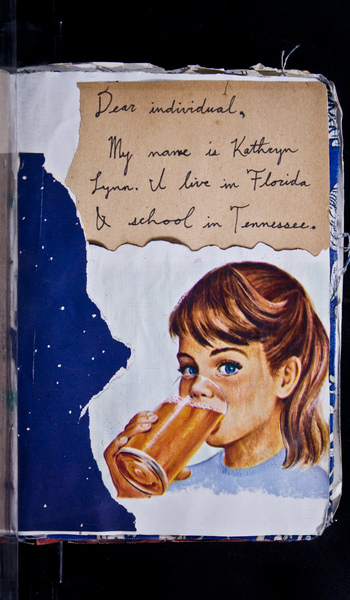 Dear individual,
My name is Kathryn
Lynn. I live in Florida
& school in Tennessee.